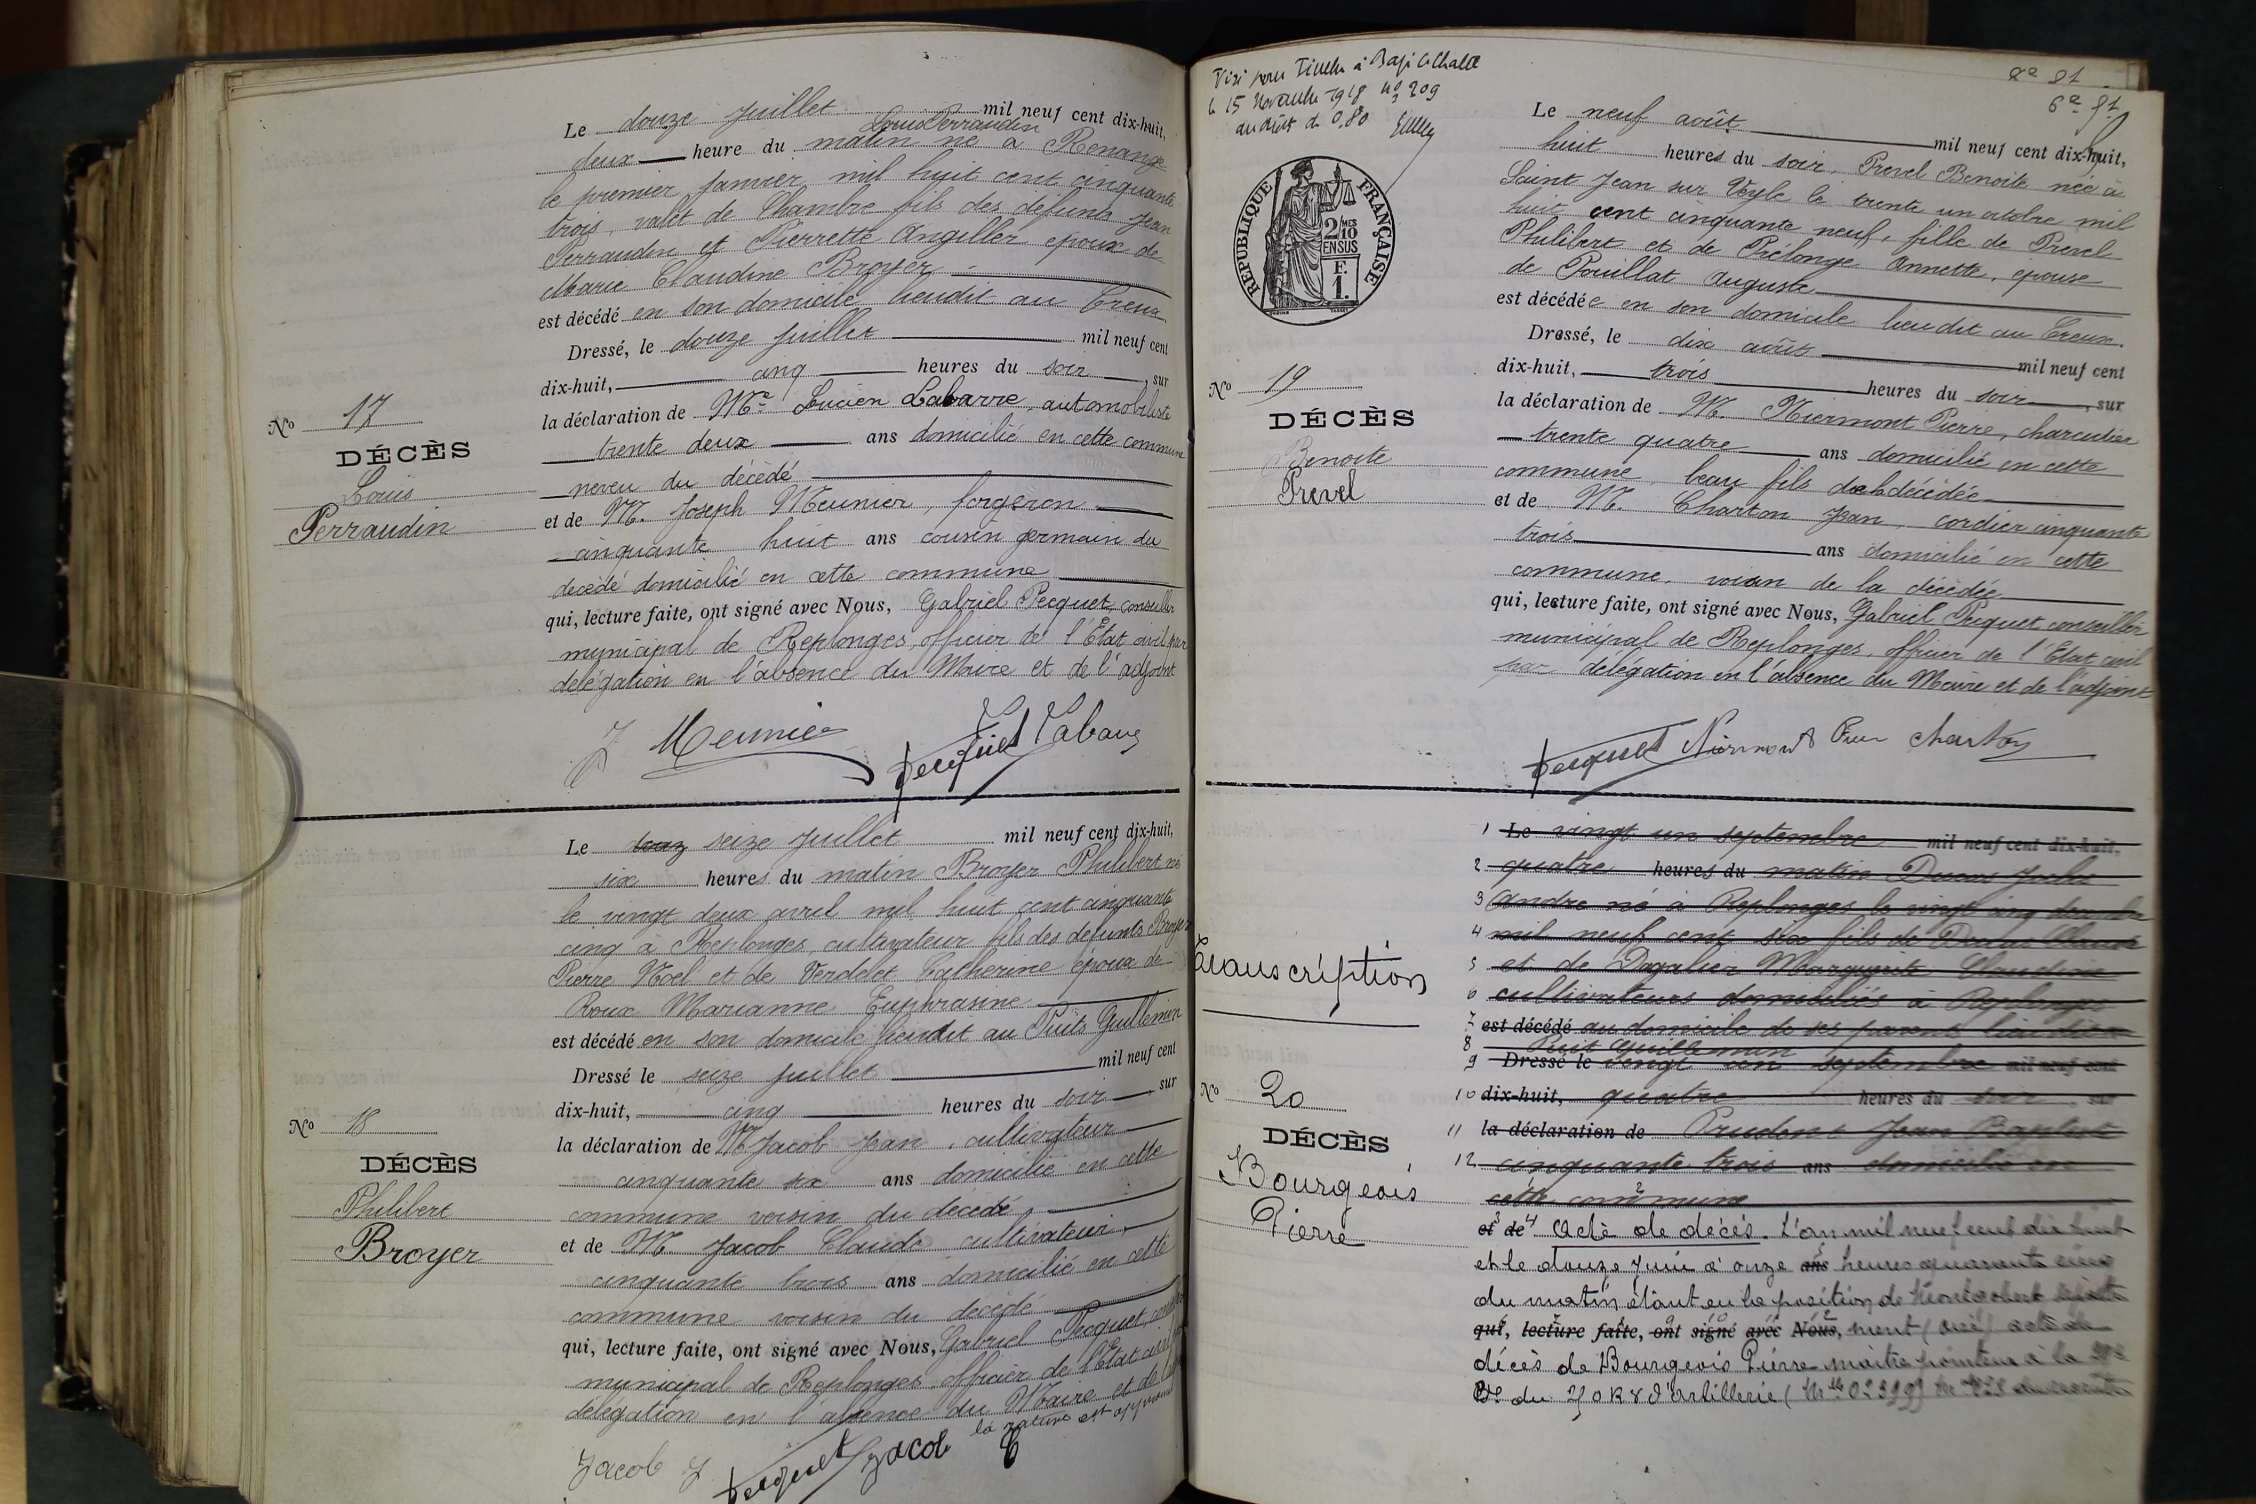 Le douze juillet mil neuf cent dix-huit,
Louis Perraudin
deux heure du matin né à Renange
le premier janvier mil huit cent cinquante
trois, valet de Chambre fils des défunts Jean
Perraudin et Pierrette Angiller époux de
Marie Claudine Broyer
est décédé en son domicile lieudit au Creux
Dressé, le douze juillet mil neuf cent
dix-huit, cinq heures du soir, sur
la déclaration de Mr Lucien Labarre, automobiliste
trente deux ans domicilié en cette commune
neveu du décédé
et de M. Joseph Meunier, forgeron
cinquante huit ans cousin germain du
décédé domicilié en cette commune
qui, lecture faite, ont signé avec Nous, Gabriel Pecquet, conseiller
municipal de Replonges, officier de l'Etat civil par
délégation en l'absence du Maire et de l'adjoint
No 17
DÉCÈS
Louis
Perraudin
J Meunier Pecquet Labarre
Le seize juillet mil neuf cent dix-huit,
six heures du matin Broyer Philibert né
le vingt deux avril mil huit cent cinquante
cinq à Replonges, cultivateur fils des défunts Broyer
Pierre Noel et de Verdelet Catherine époux de
Roux Marianne Euphrasine
est décédé en son domicile lieudit au Puits Guillemin
Dressé le seize juillet mil neuf cent
dix-huit, cinq heures du soir, sur
la déclaration de M. Jacob Jean, cultivateur
cinquante six ans domicilié en cette
commune voisin du décédé
et de M. Jacob Claude cultivateur,
cinquante trois ans domicilié en cette
commune voisin du décédé
qui, lecture faite, ont signé avec Nous, Gabriel Pecquet,
municipal de Replonges officier de l'Etat civil
délégation en l'absence du Maire et de
la rature est approuvée
No 18
DÉCÈS
Philibert
Broyer
Jacob J Pecquet Jacob C
le 15 Novembre 1918 No 209
REPUBLIQUE FRANÇAISE
2/10
EN SUS
F.
1.
6e
Le neuf août mil neuf cent dix-huit,
huit heures du soir, Prevel Benoite née à
Saint Jean sur Veyle le trente un octobre mil
huit cent cinquante neuf, fille de Prevel
Philibert et de Prélonge Annette, épouse
de Pouillat Auguste
est décédée en son domicile lieu dit au Creux.
Dressé, le dix août mil neuf cent
dix-huit, trois heures du soir, sur
la déclaration de M. Niermont Pierre, charcutier
trente quatre ans domicilié en cette
commune, beau fils de la décédée
et de M. Charton Jean, cordier cinquante
trois ans domicilié en cette
commune, voisin de la décédée
qui, lecture faite, ont signé avec Nous, Gabriel Pecquet conseiller
municipal de Replonges, officier de l'Etat civil
par délégation en l'absence du Maire et de l'adjoint
No 19
DÉCÈS
Benoite
Prevel
Pecquet Niermont Charton
1 Le vingt un septembre mil neuf cent dix-huit,
2 quatre heures du matin Ducas Jules
3 André né à Replonges le vingt cinq
4 mil neuf cent six fils de Ducas Claude
5 et de Dagalier Marguerite Claudine
6 cultivateurs domiciliés à Replonges
7 est décédé au domicile de ses parents
8 Puit Guillemin
9 Dressé le vingt un septembre mil neuf cent
10 dix-huit, quatre heures du soir sur
11 la déclaration de Prudent Jean Baptiste
12 cinquante trois ans domicilié en
cette commune
et de Acte de décès. L'an mil neuf cent dix huit
et le douze Juin à onze ans heures quarante cinq
du matin étant en la position de
qui, lecture faite, ont signé avec Nous, ment (Oise) acte de
décès de Bourgeois Pierre maître pointeur à la
du d'artillerie
Transcription
No 20
DÉCÈS
Bourgeois
Pierre